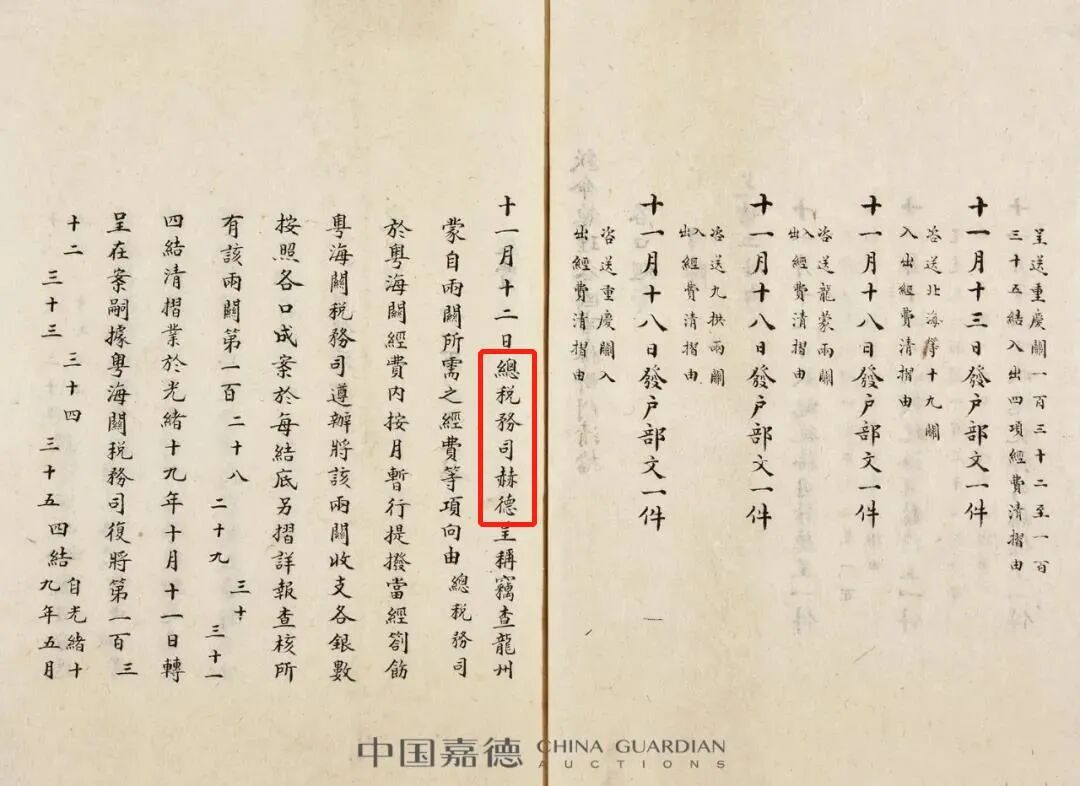 呈送重慶關一百三十二至一百
三十五結入出四項經費清摺由
十一月十三日發户部文一件
咨送北海等十九關
入出經費清摺由
十一月十八日發户部文一件
咨送龍蒙兩關
入出經費清摺由
十一月十八日發户部文一件
咨送九拱兩關
入出經費清摺由
十一月十八日發户部文一件
咨送重慶關入
出經費清摺由
十一月十二日總税務司赫德呈稱竊查龍州
蒙自兩關所需之經費等項向由總税務司
於粤海關經費内按月暫行提撥當經劄飭
粤海關税務司遵辦將該兩關收支各銀數
按照各口成案於每結底另摺詳報查核所
有該兩關第一百二十八 二十九 三十 三十一
四結清摺業於光緒十九年十月十一日轉
呈在案嗣據粤海關税務司復將第一百三
十二 三十三 三十四 三十五 四結 自光緒十九年五月
中国嘉德 CHINA GUARDIAN AUCTIONS